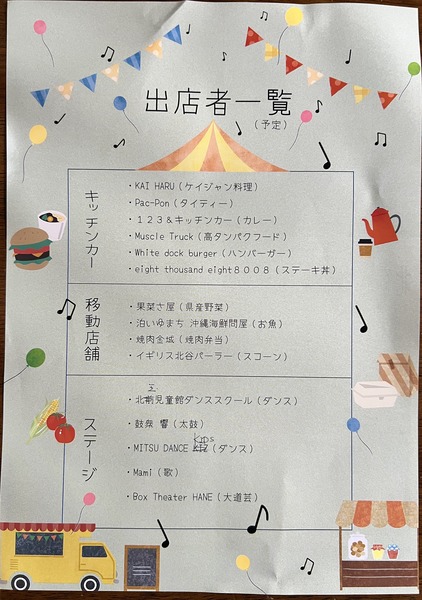 出店者一覧
(予定)
キッチンカー
・KAI HARU(ケイジャン料理)
・Pac-Pon(タイティー)
・123&キッチンカー(カレー)
・Muscle Truck(高タンパクフード)
・White dock burger(ハンバーガー)
・eight thousand eight8008(ステーキ丼)
移動店舗
・果菜さ屋(県産野菜)
・泊いゆまち 沖縄海鮮問屋(お魚)
・焼肉金城(焼肉弁当)
・イギリス北谷パーラー(スコーン)
ステージ
・北前児童館ダンススクール(ダンス)
・鼓衆 響(太鼓)
KIDS
・MITSU DANCE (ダンス)
・Mami(歌)
・Box Theater HANE(大道芸)